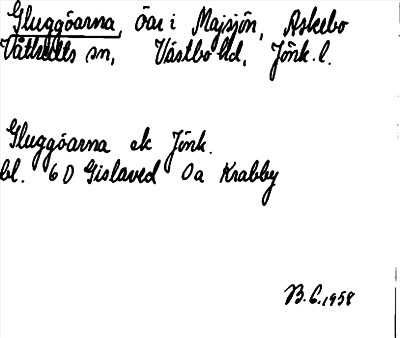 Gluggöarna, Öar i Majsjön, Askebo
Våthults sn, Västbo hd, Jönk. l.
Gluggöarna ek Jönk.
bl. 6D Gislaved 0a Krabby
B.G. 1958